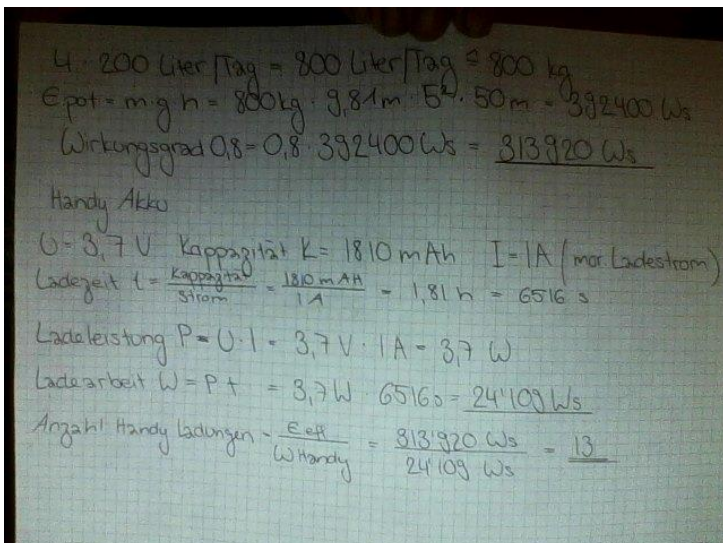 4 · 200 Liter/Tag = 800 Liter/Tag ≙ 800 kg
Epot = m·g·h = 800kg · 9,81m · s⁻² · 50m = 392400 Ws
Wirkungsgrad 0,8 = 0,8 · 392400 Ws = 313920 Ws
Handy Akku
U = 3,7 V Kappazität K = 1810 mAh I = 1A (max. Ladestrom)
Ladezeit t = Kappazität / Strom = 1810 mAH / 1 A = 1,81 h = 6516 s
Ladeleistung P = U·I = 3,7 V · 1 A = 3,7 W
Ladearbeit W = P t = 3,7W · 6516s = 24'109 Ws
Anzahl Handy Ladungen = Eeff / WHandy = 313'920 Ws / 24'109 Ws = 13